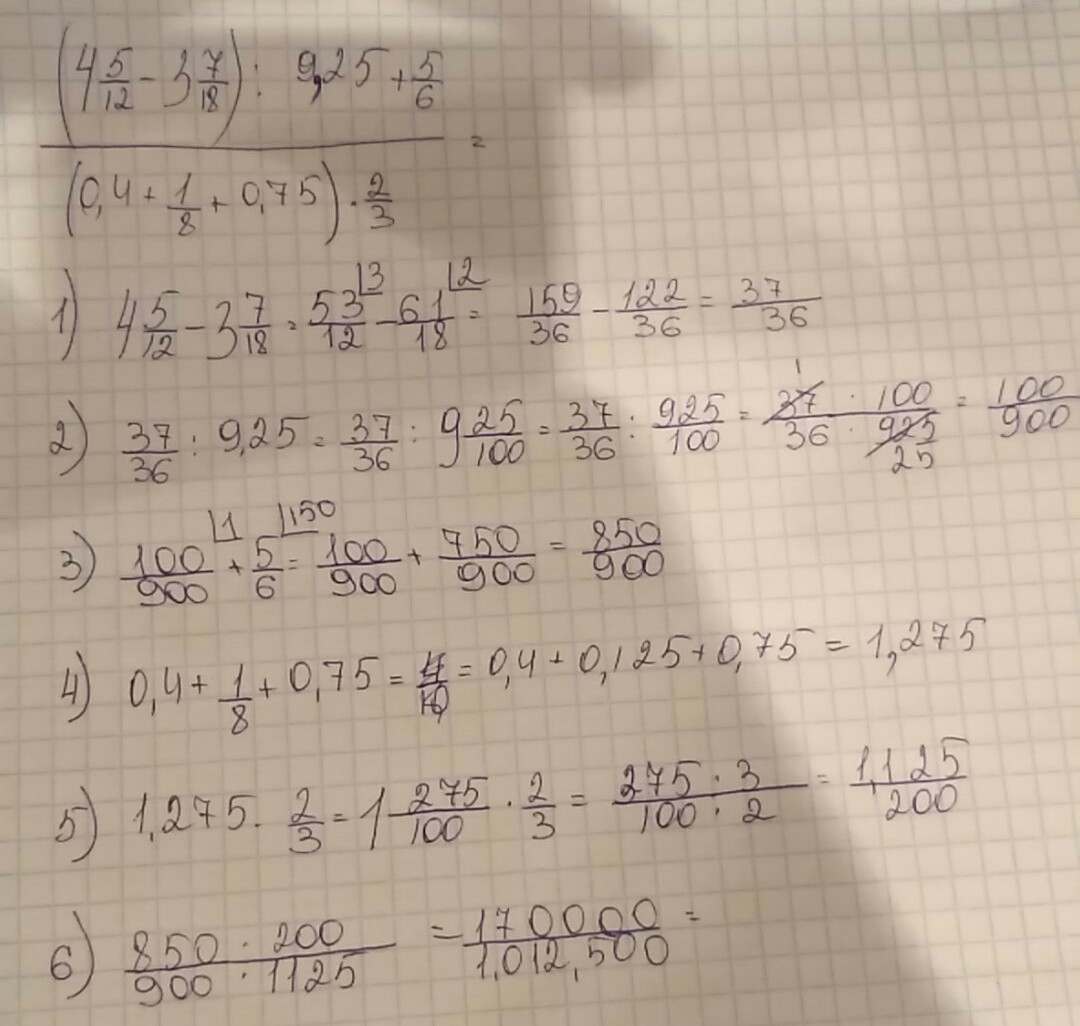 (4 5/12 - 3 7/18) : 9,25 + 5/6
(0,4 + 1/8 + 0,75) · 2/3 =
1) 4 5/12 - 3 7/18 = 53/12 ⌊3 - 61/18 ⌊2 = 159/36 - 122/36 = 37/36
2) 37/36 : 9,25 = 37/36 : 9 25/100 = 37/36 : 925/100 = 37 1 · 100 / 36 · 925 25 = 100/900
3) 100/900 ⌊1 + 5/6 ⌊150 = 100/900 + 750/900 = 850/900
4) 0,4 + 1/8 + 0,75 = 4/10 = 0,4 + 0,125 + 0,75 = 1,275
5) 1,275 · 2/3 = 1 275/100 · 2/3 = 275 · 3 / 100 · 2 = 1,125/200
6) 850 · 200 / 900 · 1125 = 170000/1.012,500 =